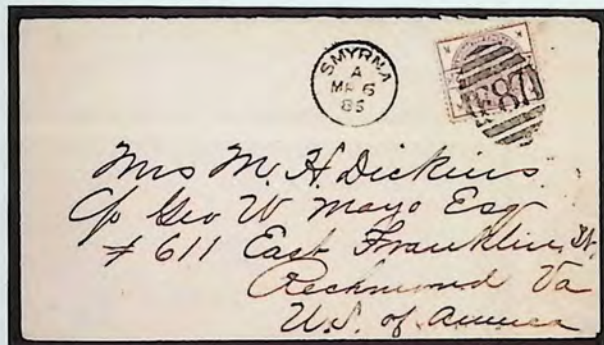 SMYRNA
A
MR 6
F87
Mrs M. H. Dickins
c/o Geo W Mayo Esq
# 611 East Franklin St.
Richmond Va
U.S. of America